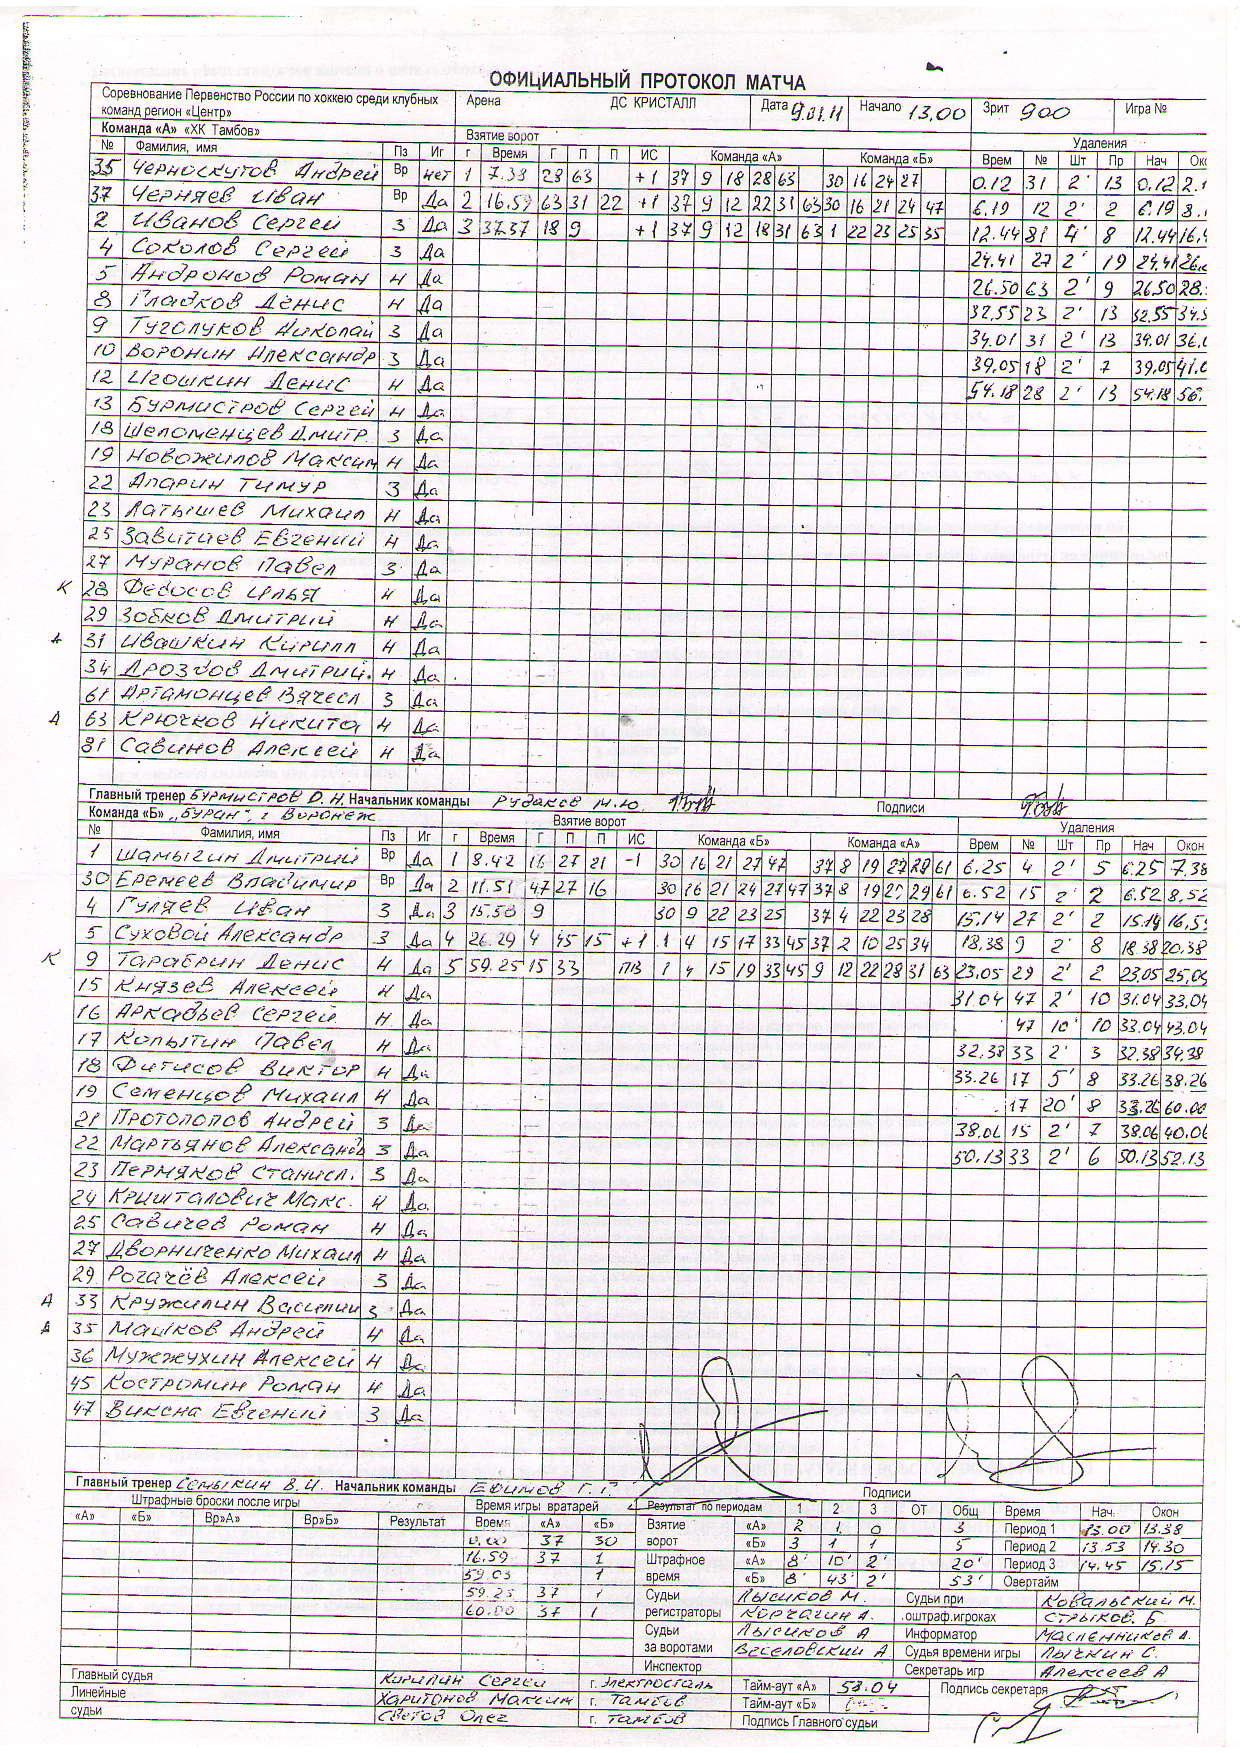 ОФИЦИАЛЬНЫЙ ПРОТОКОЛ МАТЧА
Соревнование Первенство России по хоккею среди клубных команд регион «Центр» Арена ДС КРИСТАЛЛ Дата 9.01.11 Начало 13.00 Зрит 900 Игра №
Команда «А» «ХК Тамбов» Взятие ворот Удаления
№ Фамилия, имя Пз Иг г Время Г П П ИС Команда «А» Команда «Б» Врем № Шт Пр Нач Око
35 Черноскутов Андрей Вр нет 1 7.38 28 63 +1 37 9 18 28 63 30 16 24 27 0.12 31 2' 13 0.12
37 Черняев Иван Вр Да 2 16.59 63 31 22 +1 37 9 12 22 31 63 30 16 21 24 47 6.19 12 2' 2 6.19
2 Иванов Сергей З Да 3 37.37 18 9 +1 37 9 12 18 31 63 1 22 23 25 35 12.44 81 4' 8 12.44
4 Соколов Сергей З Да 24.41 27 2' 19 24.41
5 Андронов Роман Н Да 26.50 63 2' 9 26.50
8 Гладков Денис Н Да 32.55 23 2' 13 32.55
9 Туголуков Николай З Да 34.01 31 2' 13 34.01
10 Воронин Александр З Да 39.05 18 2' 7 39.05
12 Игошкин Денис Н Да 54.18 28 2' 13 54.18
13 Бурмистров Сергей Н Да
18 Шеломенцев Дмитр. З Да
19 Новожилов Максим Н Да
22 Апарин Тимур З Да
23 Латышев Михаил Н Да
25 Завитаев Евгений Н Да
27 Муранов Павел З Да
К 28 Федосов Илья Н Да
29 Зобков Дмитрий Н Да
А 31 Ивашкин Кирилл Н Да
34 Дроздов Дмитрий. Н Да
61 Артамонцев Вячесл З Да
А 63 Крючков Никита Н Да
81 Савинов Алексей Н Да
Главный тренер Бурмистров О.Н. Начальник команды Рудаков М.Ю. Подписи
Команда «Б» „Буран", г Воронеж Взятие ворот Удаления
№ Фамилия, имя Пз Иг г Время Г П П ИС Команда «Б» Команда «А» Врем № Шт Пр Нач Окон
1 Шамыгин Дмитрий Вр Да 1 8.42 16 27 21 -1 30 16 21 27 47 37 8 19 61 6.25 4 2' 5 6.25 7.38
30 Еремеев Владимир Вр Да 2 11.51 47 27 16 30 16 21 24 27 47 37 8 19 29 61 6.52 15 2' 2 6.52 8.52
4 Гуляев Иван З Да 3 15.58 9 30 9 22 23 25 37 4 22 23 28 15.14 27 2' 2 15.14 16.59
5 Суховой Александр З Да 4 26.29 4 45 15 +1 1 4 15 17 33 45 37 2 10 25 34 18.38 9 2' 8 18.38 20.38
К 9 Тарабрин Денис Н Да 5 59.25 15 33 ПВ 1 4 15 19 33 45 9 12 22 28 31 63 23.05 29 2' 2 23.05 25.05
15 Князев Алексей Н Да 31.04 47 2' 10 31.04 33.04
16 Аркадьев Сергей Н Да 47 10' 10 33.04 43.04
17 Копытин Павел Н Да 32.38 33 2' 3 32.38 34.38
18 Фитисов Виктор Н Да 33.26 17 5' 8 33.26 38.26
19 Семенцов Михаил Н Да 17 20' 8 33.26 60.00
21 Протопопов Андрей З Да 38.06 15 2' 7 38.06 40.06
22 Мартьянов Александр З Да 50.13 33 2' 6 50.13 52.13
23 Пермяков Станисл. З Да
24 Кришталович Макс. Н Да
25 Савичев Роман Н Да
27 Дворниченко Михаил Н Да
29 Рогачёв Алексей З Да
А 33 Кружилин Василий З Да
А 35 Машков Андрей Н Да
36 Мужжухин Алексей Н Да
45 Костромин Роман Н Да
47 Виксна Евгений З Да
Главный тренер Семыкин В.И. Начальник команды Ефимов Г. Подписи
Штрафные броски после игры Время игры вратарей Результат по периодам 1 2 3 ОТ Общ Время Нач. Окон
«А» «Б» Вр»А» Вр»Б» Результат Время «А» «Б» Взятие ворот «А» 2 1 0 3 Период 1 13.00 13.38
0.00 37 30 «Б» 3 1 1 5 Период 2 13.53 14.30
16.59 37 1 Штрафное время «А» 8' 10' 2' 20' Период 3 14.45 15.15
59.03 1 «Б» 8' 43' 2' 53' Овертайм
59.25 37 1 Судьи регистраторы Лысиков М. Судьи при Ковальский М.
60.00 37 1 Корчагин А. .оштраф.игроках Стрыков. Б
Судьи за воротами Лысиков А Информатор Масленников А.
Веселовский А Судья времени игры Лычкин С.
Инспектор Секретарь игр Алексеев А
Главный судья Кирилин Сергей г. Электросталь Тайм-аут «А» 58.04 Подпись секретаря
Линейные судьи Харитонов Максим г. Тамбов Тайм-аут «Б»
Светов Олег г. Тамбов Подпись Главного судьи